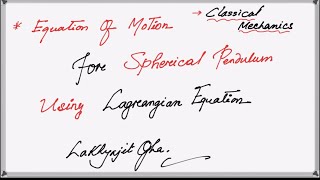 * Equation Of Motion
→ Classical
Mechanics
Fore Spherical Pendulum
Using Lagreangian Equation